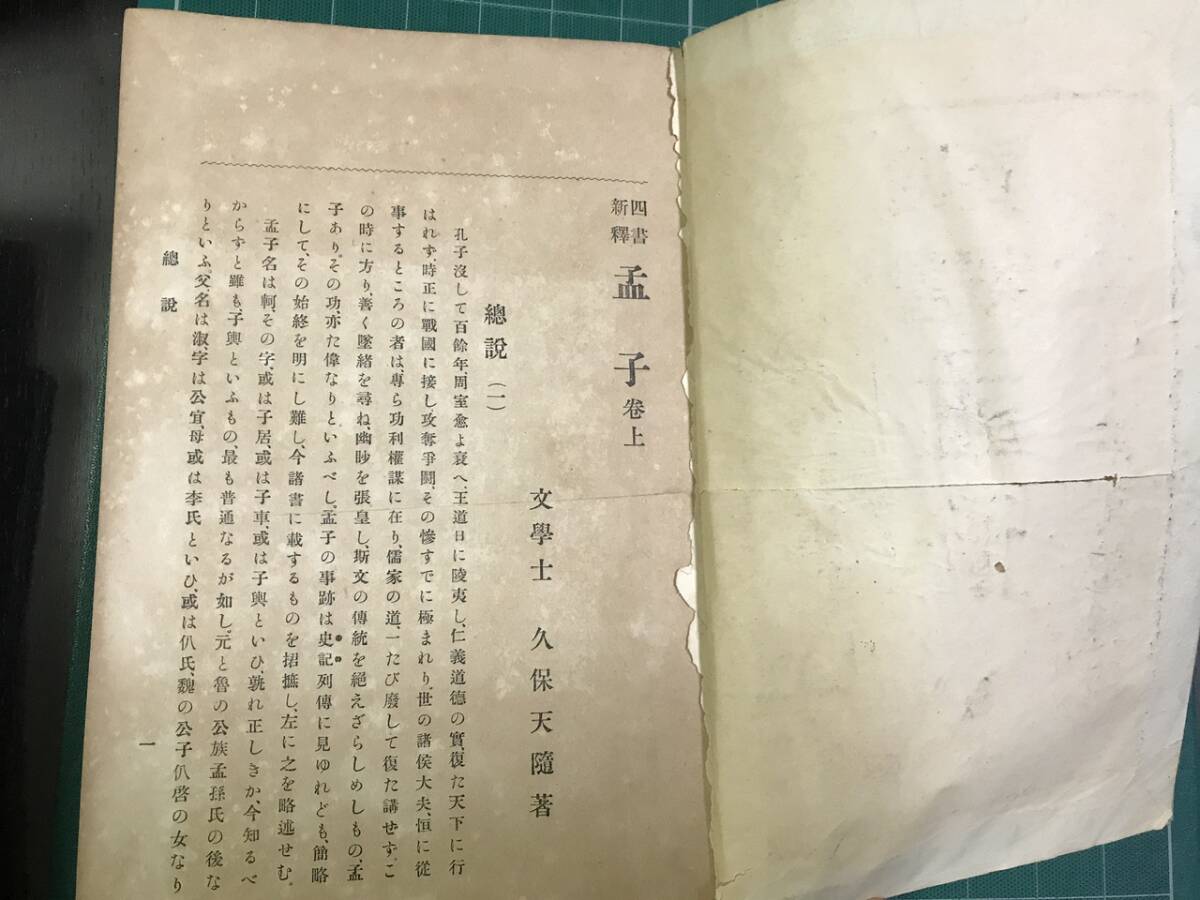 四書
新釋
孟子卷上
文學士 久保天隨著
總說(一)
孔子沒して百餘年、周室愈よ衰へ、王道日に陵夷し、仁義道德の實、復た天下に行
はれず、時正に戰國に接し、攻奪爭鬪、その慘すでに極まれり。世の諸侯大夫、恒に從
事するところの者は、專ら功利權謀に在り、儒家の道、一たび廢して復た講せず。こ
の時に方り、善く墜緒を尋ね、幽眇を張皇し、斯文の傳統を絕えざらしめしもの、孟
子あり。その功、亦た偉なりといふべし。孟子の事跡は史記列傳に見ゆれども、簡略
にして、その始終を明にし難し、今諸書に載するものを招摭し、左に之を略述せむ。
孟子名は軻、その字、或は子居、或は子車、或は子輿といひ、孰れ正しきか、今知るべ
からずと雖も、子輿といふもの、最も普通なるが如し。元と魯の公族孟孫氏の後な
りといふ。父、名は淑、字は公宜、母或は李氏といひ、或は仉氏、魏の公子仉啓の女なり
總說
一